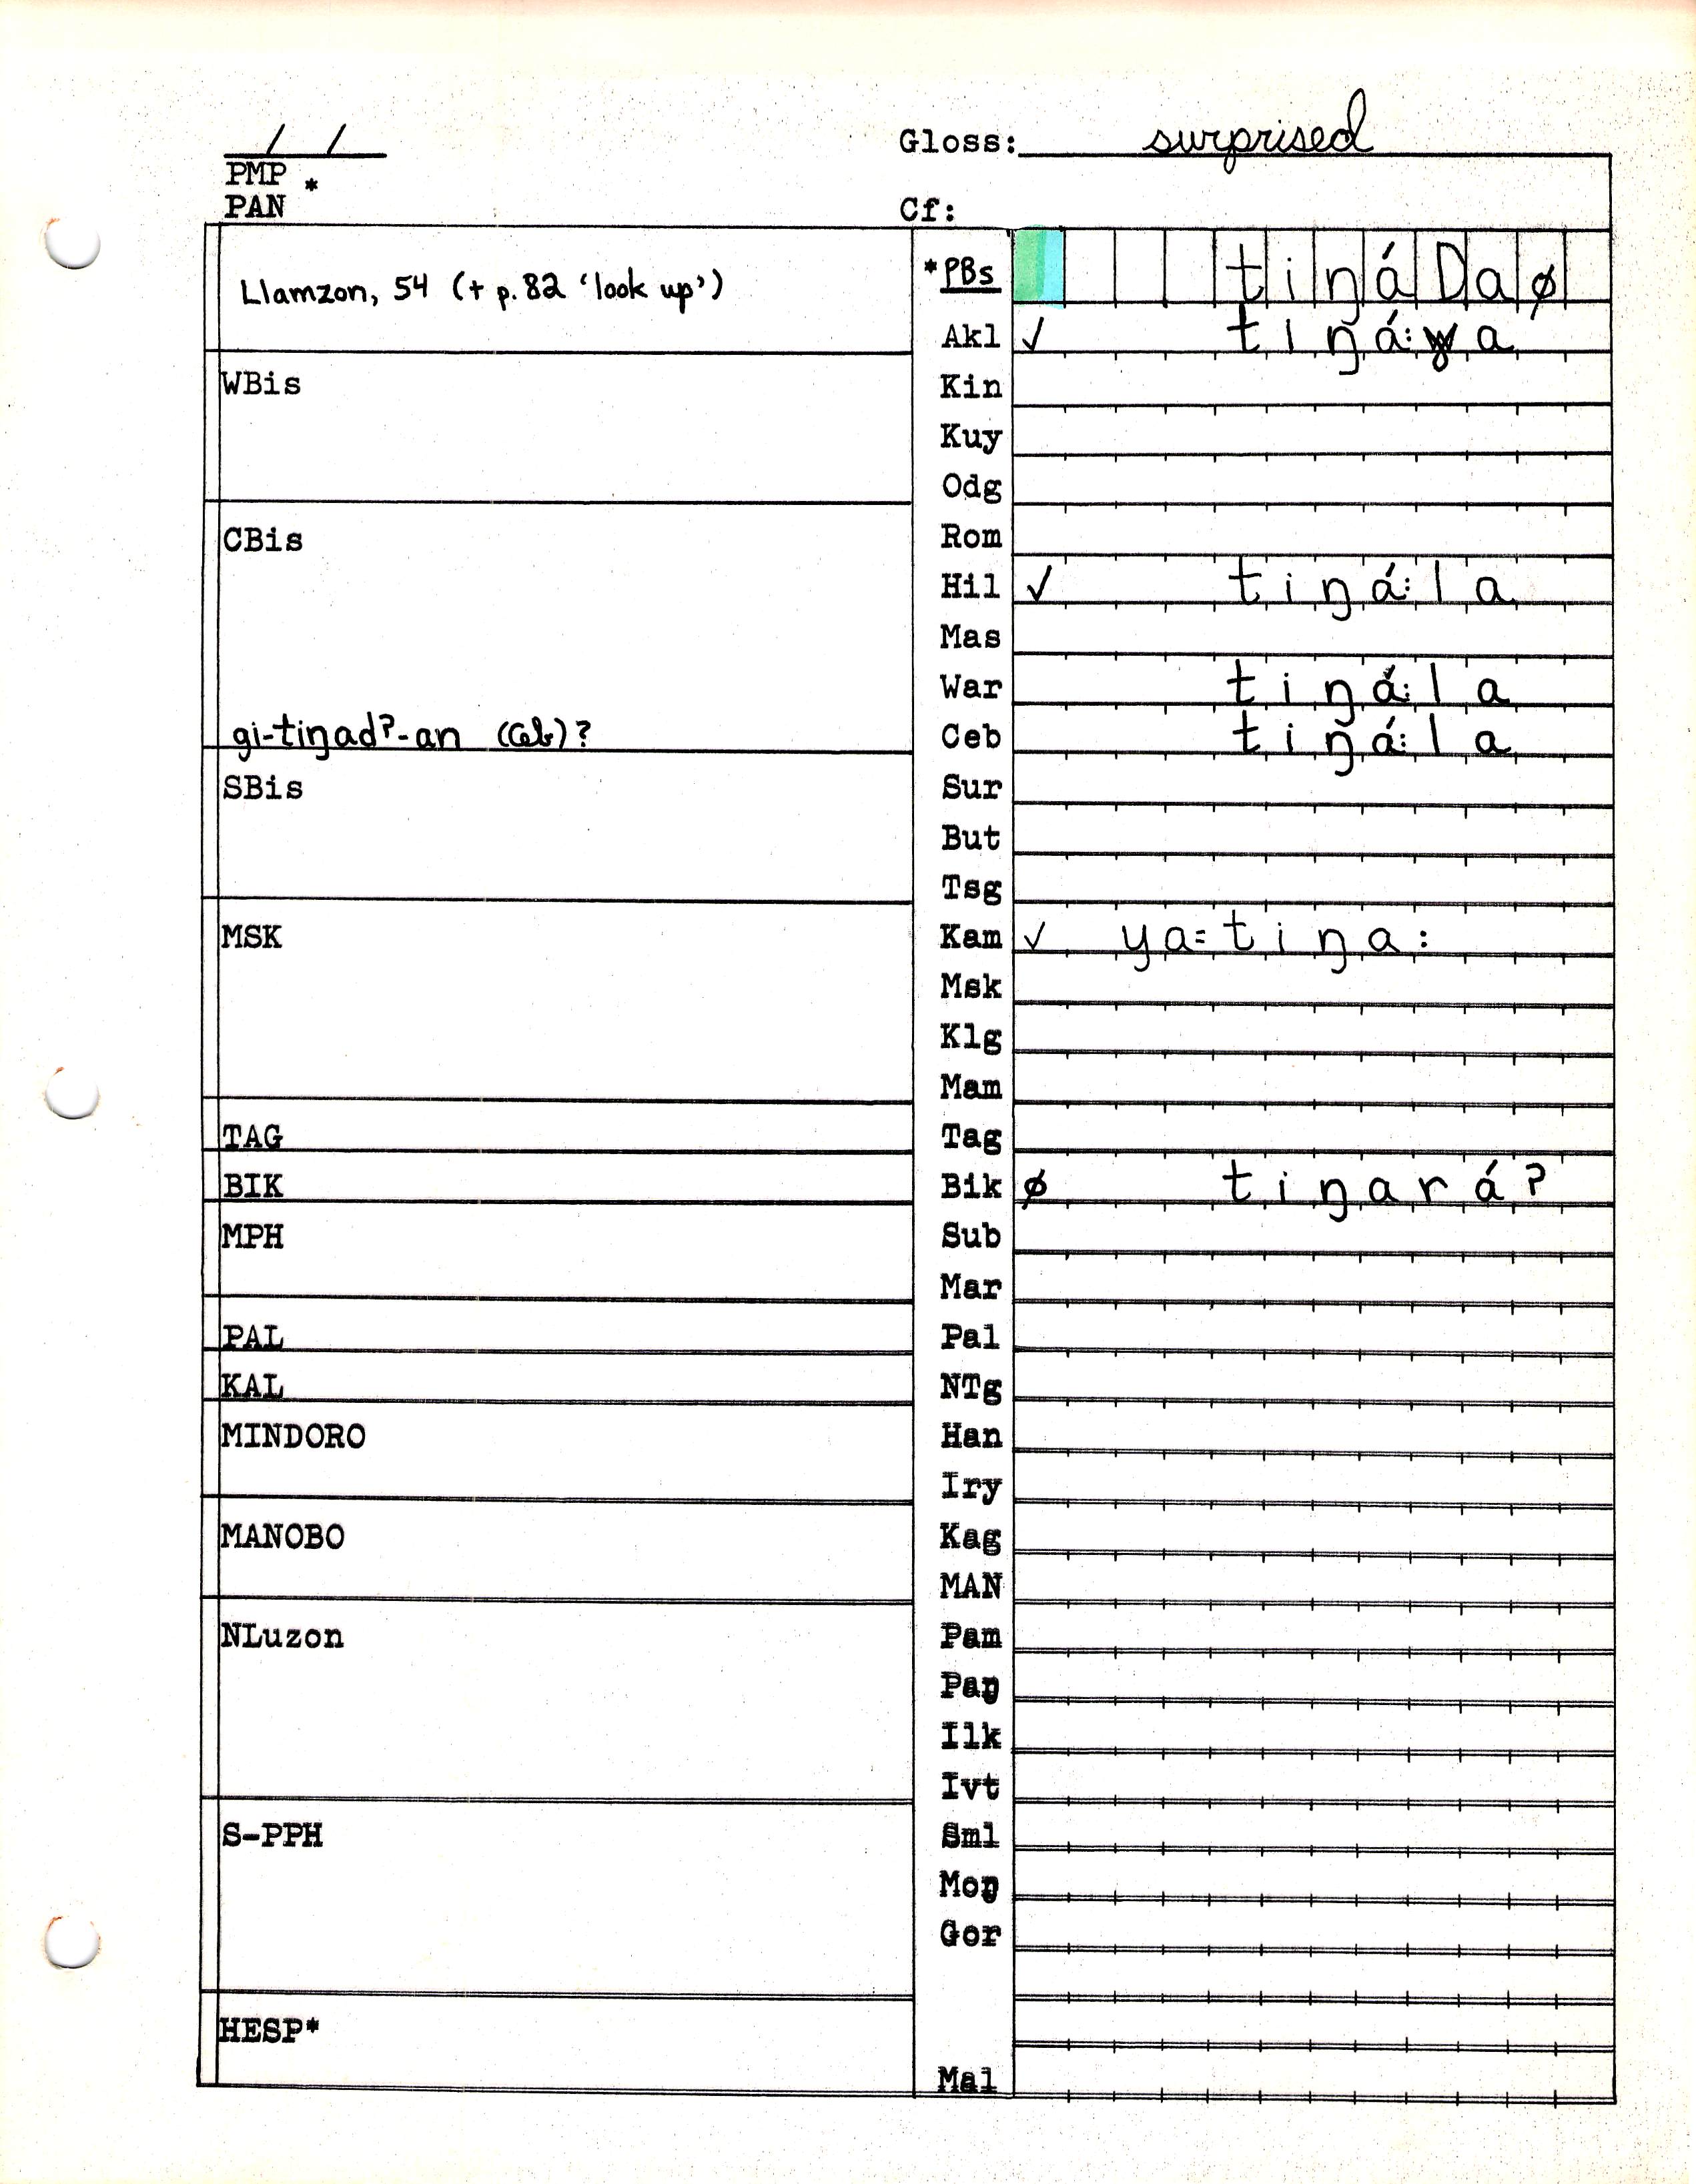 / /
Gloss: surprised
PMP *
PAN
Cf:
Llamzon, 54 (+ p. 82 ‘look up’)
*PBs tiŋáDaø
Akl ✓ tiŋá:a
WBis
Kin
Kuy
Odg
CBis
Rom
Hil ✓ tiŋá:la
Mas
War tiŋá:la
gi-tiŋad?-an (Ceb)?
Ceb tiŋá:la
SBis
Sur
But
Tsg
MSK
Kam ✓ ya=tiŋa:
Msk
Klg
Mam
TAG
Tag
BIK
Bik ø tiŋará?
MPH
Sub
Mar
PAL
Pal
KAL
NTg
MINDORO
Han
Iry
MANOBO
Kag
MAN
NLuzon
Pam
Paŋ
Ilk
Ivt
S-PPH
Sml
Moŋ
Gor
HESP*
Mal